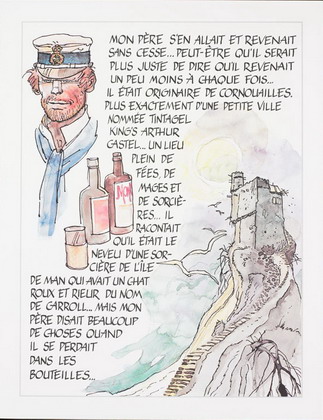 MON PÈRE S'EN ALLAIT ET REVENAIT
SANS CESSE... PEUT-ÊTRE QU'IL SERAIT
PLUS JUSTE DE DIRE QU'IL REVENAIT
UN PEU MOINS À CHAQUE FOIS...
IL ÉTAIT ORIGINAIRE DE CORNOUAILLES.
PLUS EXACTEMENT D'UNE PETITE VILLE
NOMMÉE TINTAGEL
KING'S ARTHUR
CASTEL... UN LIEU
PLEIN DE
FÉES, DE
MAGES ET
DE SORCIÈ-
RES... IL
RACONTAIT
QU'IL ÉTAIT LE
NEVEU D'UNE SOR-
CIÈRE DE L'ÎLE
DE MAN QUI AVAIT UN CHAT
ROUX ET RIEUR DU NOM
DE CARROLL... MAIS MON
PÈRE DISAIT BEAUCOUP
DE CHOSES QUAND
IL SE PERDAIT
DANS LES
BOUTEILLES...